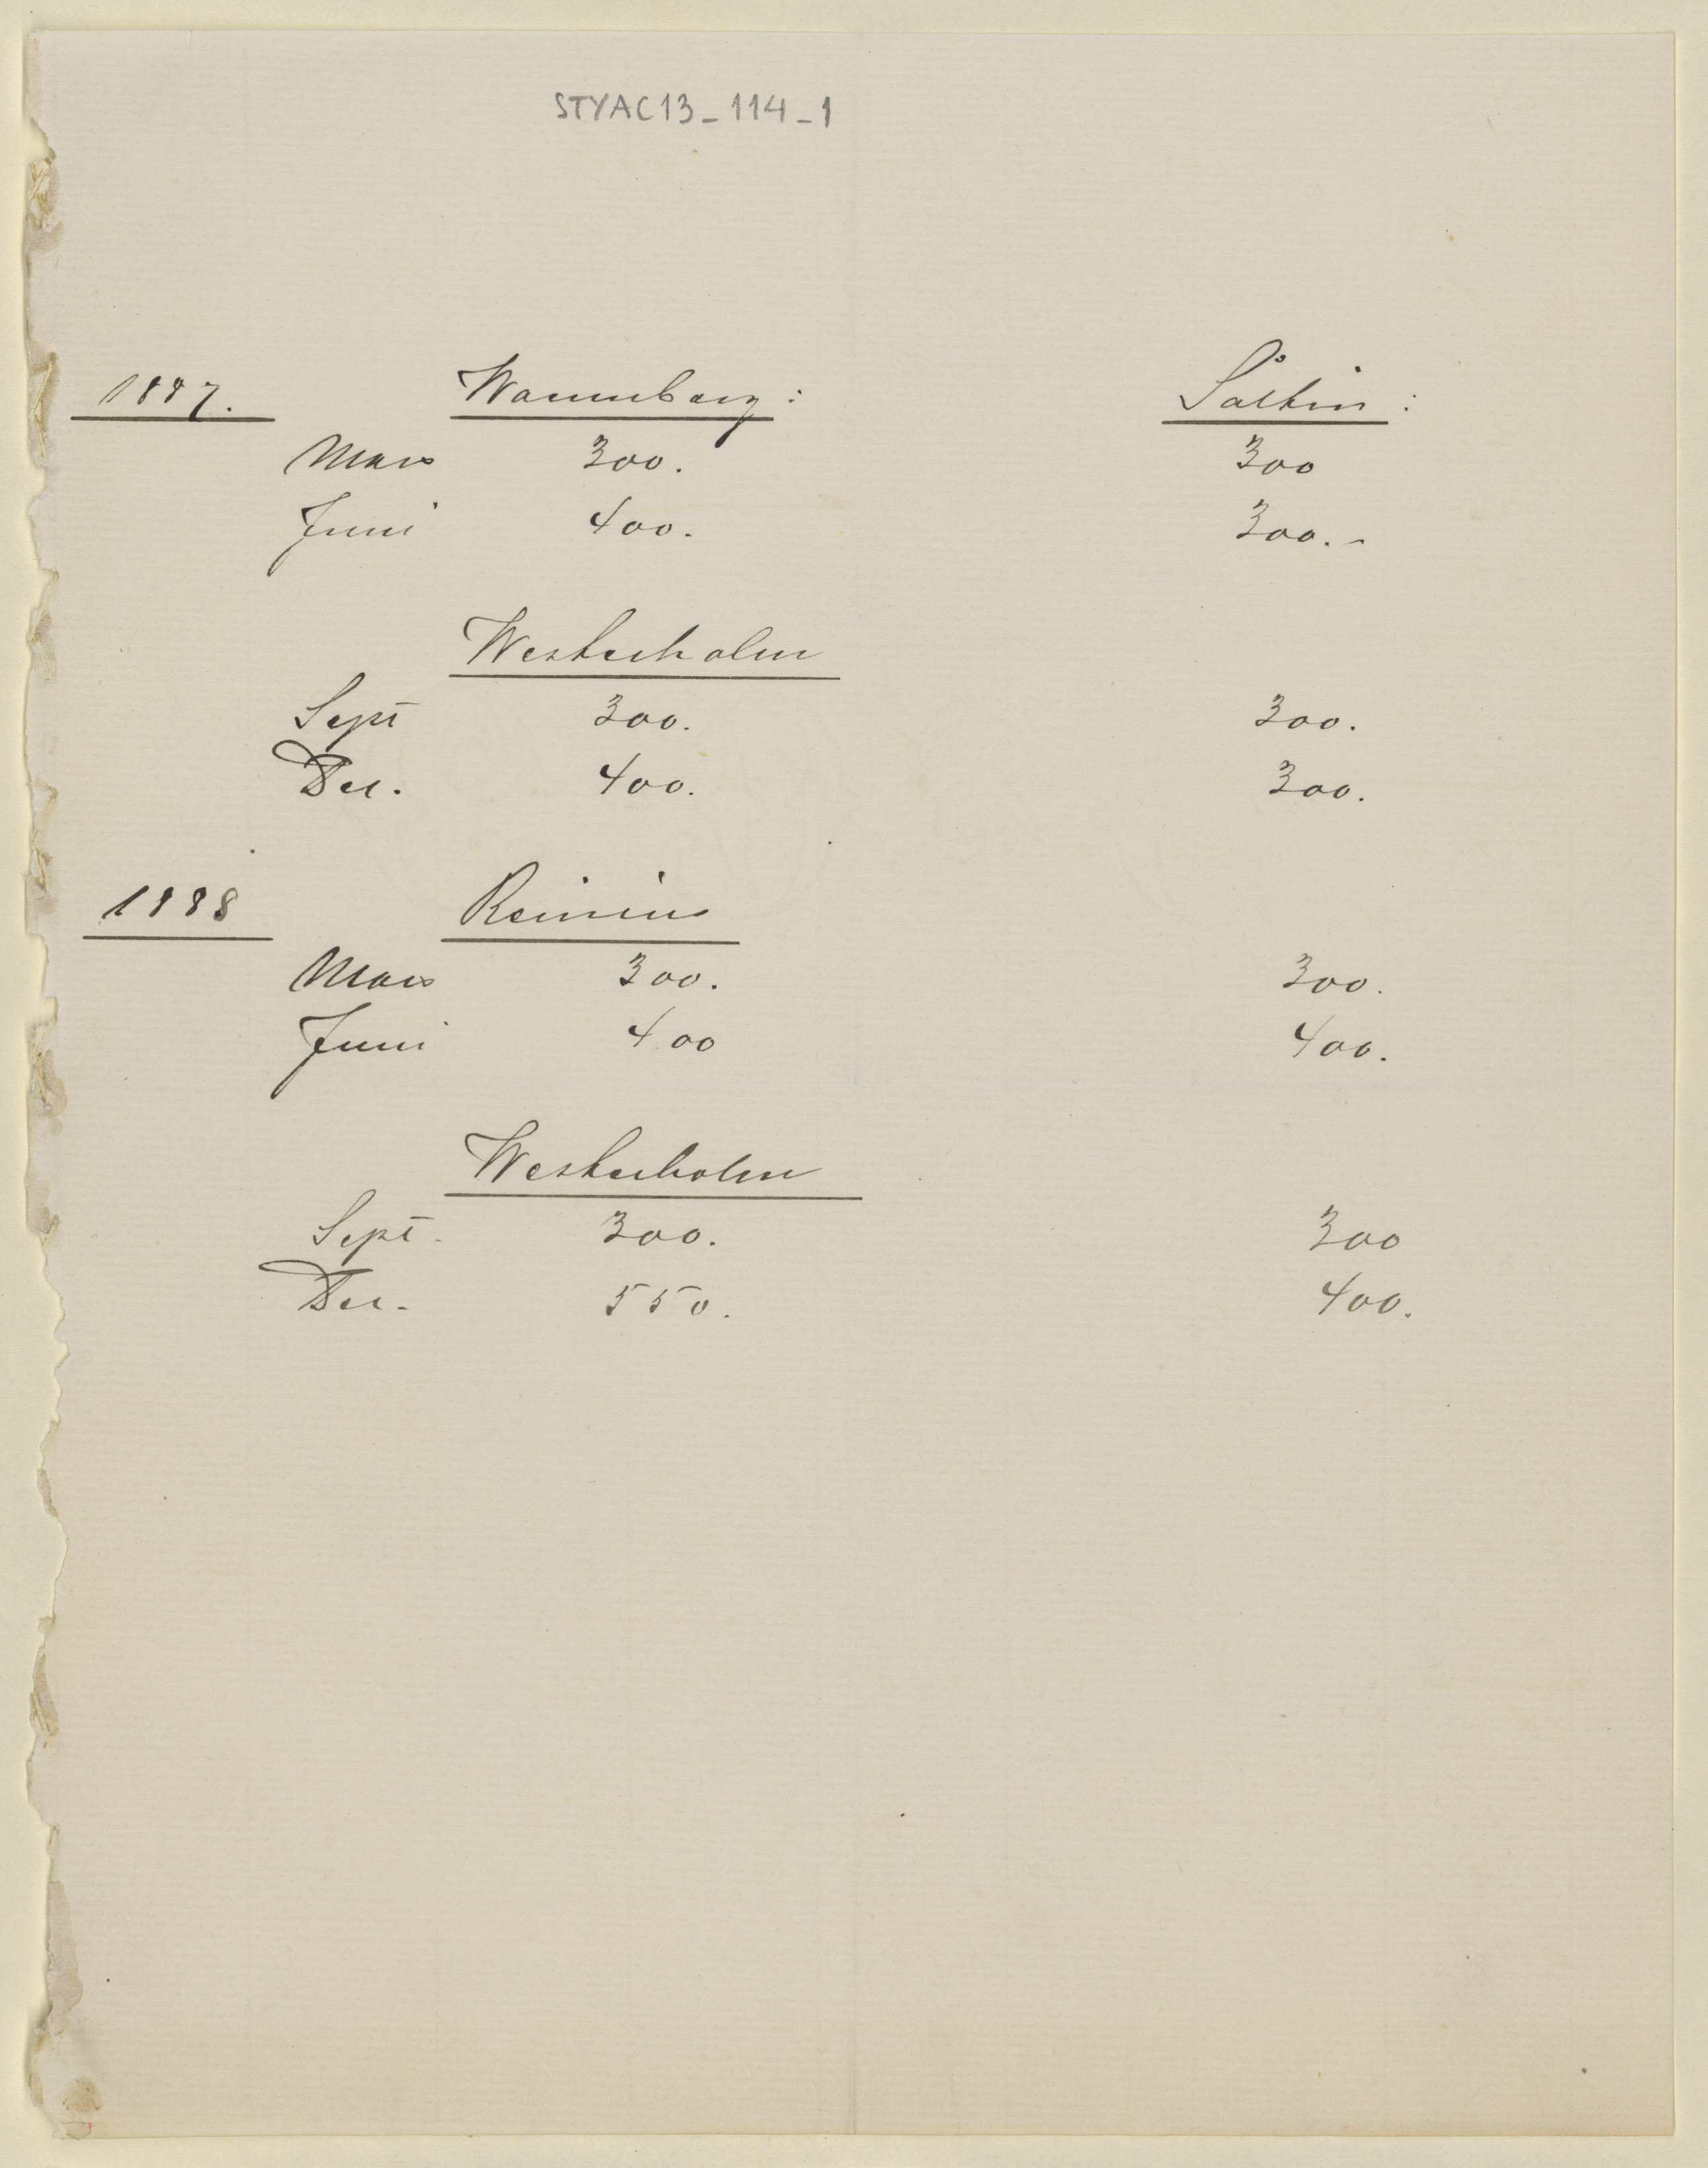 STYAC13_114_1
1887. Wannberg: Såltin:
Mars 300. 300
Juni 400. 300.-
Westerholm
Sept 300. 300.
Dec. 400. 300.
1888 Reinius
Mars 300. 300.
Juni 400 400.
Westerholm
Sept. 300. 300
Dec. 550. 400.